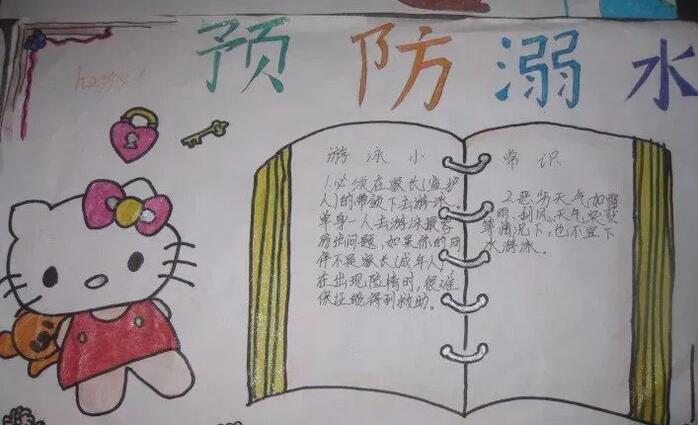 预防溺水
happy!
游泳小常识
1.必须在家长(监护
人)的带领下去游泳。
单身一人去游泳最容
易出问题,如果你的同
伴不是家长(成年人)
在出现险情时,很难
保证能得到救助。
2.恶劣天气,如雷
雨、刮风、天气突变
等情况下,也不宜下
水游泳。